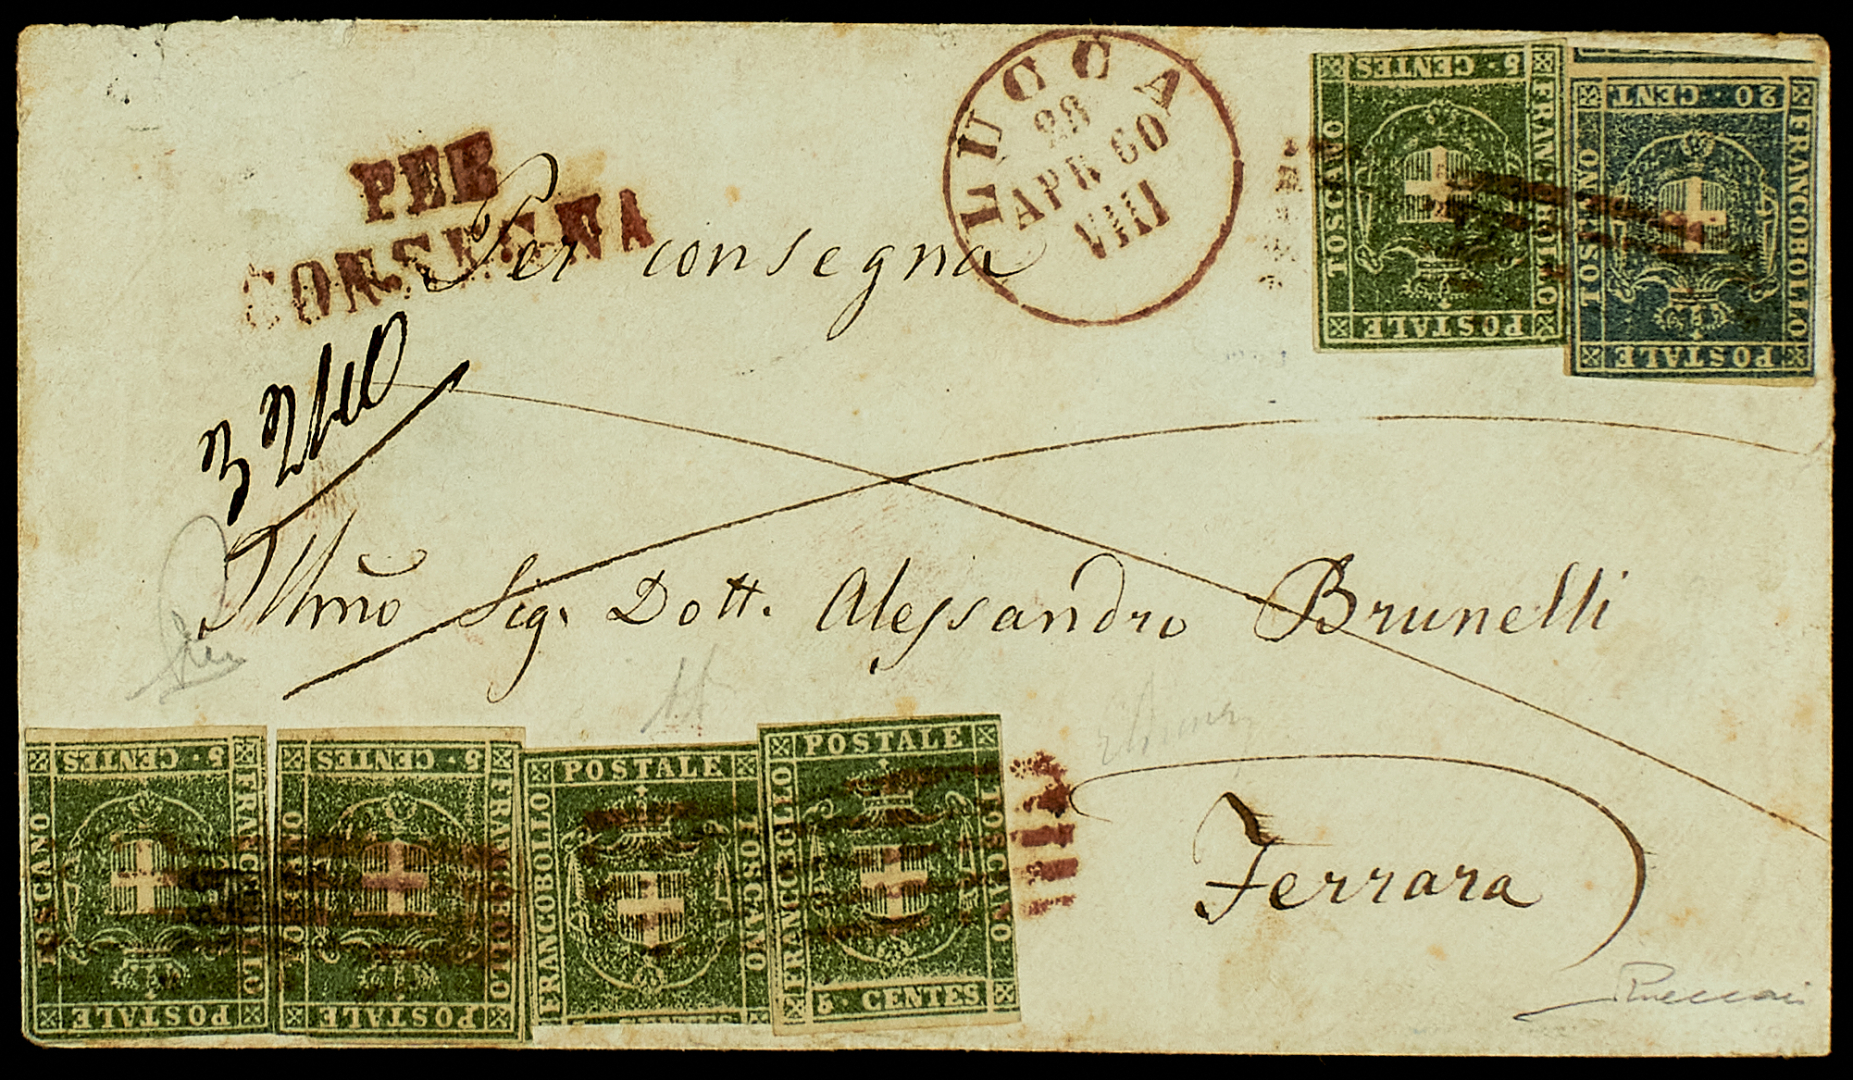 PER
CONSEGNA
Per consegna
LUCCA
28
APR 60
VIII
5 · CENTES
TOSCANO
FRANCOBOLLO
POSTALE
20 · CENT
TOSCANO
FRANCOBOLLO
POSTALE
3240
Illmo Sig. Dott. Alessandro Brunelli
Ferrara
5 · CENTES
TOSCANO
FRANCOBOLLO
POSTALE
5 · CENTES
TOSCANO
FRANCOBOLLO
POSTALE
POSTALE
FRANCOBOLLO
TOSCANO
CENTES
POSTALE
FRANCOBOLLO
TOSCANO
5 · CENTES